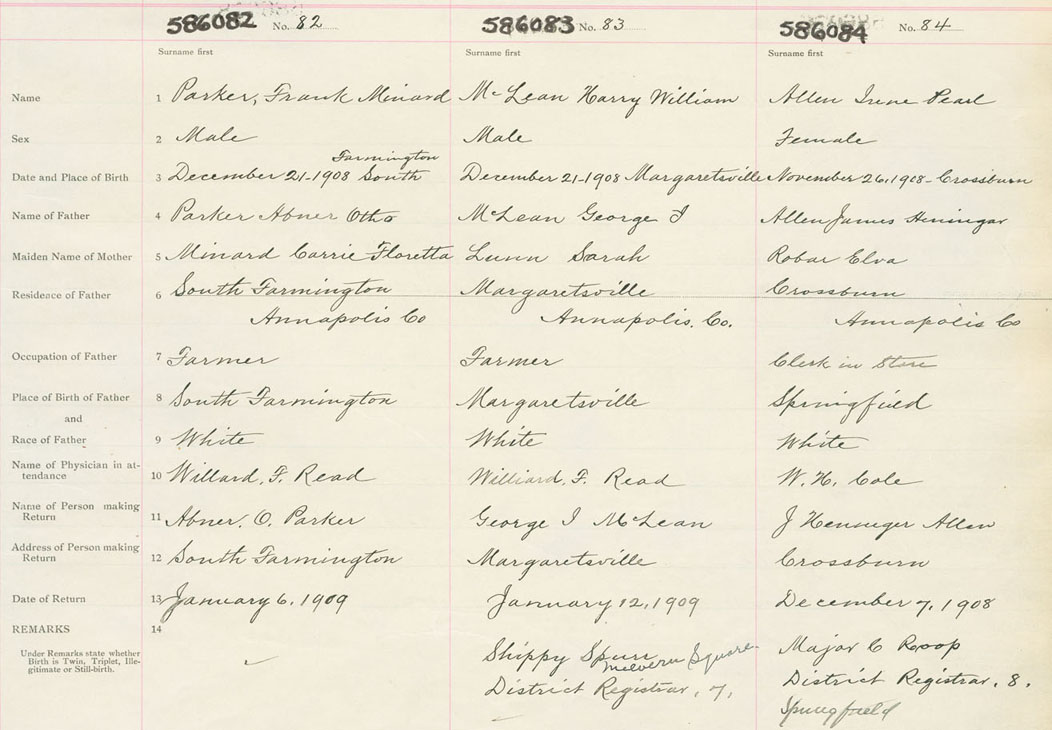 586082 No. 82 586083 No. 83 586084 No. 84
Surname first Surname first Surname first
Name 1 Parker, Frank Minard McLean Harry William Allen Irene Pearl
Sex 2 Male Male Female
Farmington
Date and Place of Birth 3 December 21-1908 South December 21-1908 Margaretsville November 26, 1908 - Crossburn
Name of Father 4 Parker Abner Otho McLean George I Allen James Heningar
Maiden Name of Mother 5 Minard Carrie Floretta Lunn Sarah Robar Elva
Residence of Father 6 South Farmington Margaretsville Crossburn
Annapolis Co Annapolis. Co. Annapolis Co
Occupation of Father 7 Farmer Farmer Clerk in Store
Place of Birth of Father 8 South Farmington Margaretsville Springfield
and
Race of Father 9 White White White
Name of Physician in at-
tendance 10 Willard. F. Read Williard. F. Read W. H. Cole
Name of Person making
Return 11 Abner. O. Parker George I McLean J Henniger Allen
Address of Person making
Return 12 South Farmington Margaretsville Crossburn
Date of Return 13 January 6, 1909 January 12, 1909 December 7, 1908
REMARKS 14
Under Remarks state whether
Birth is Twin, Triplet, Ille-
gitimate or Still-birth.
Shippy Spurr Melvern Square Major C Roop
District Registrar, 7, District Registrar. 8.
Springfield